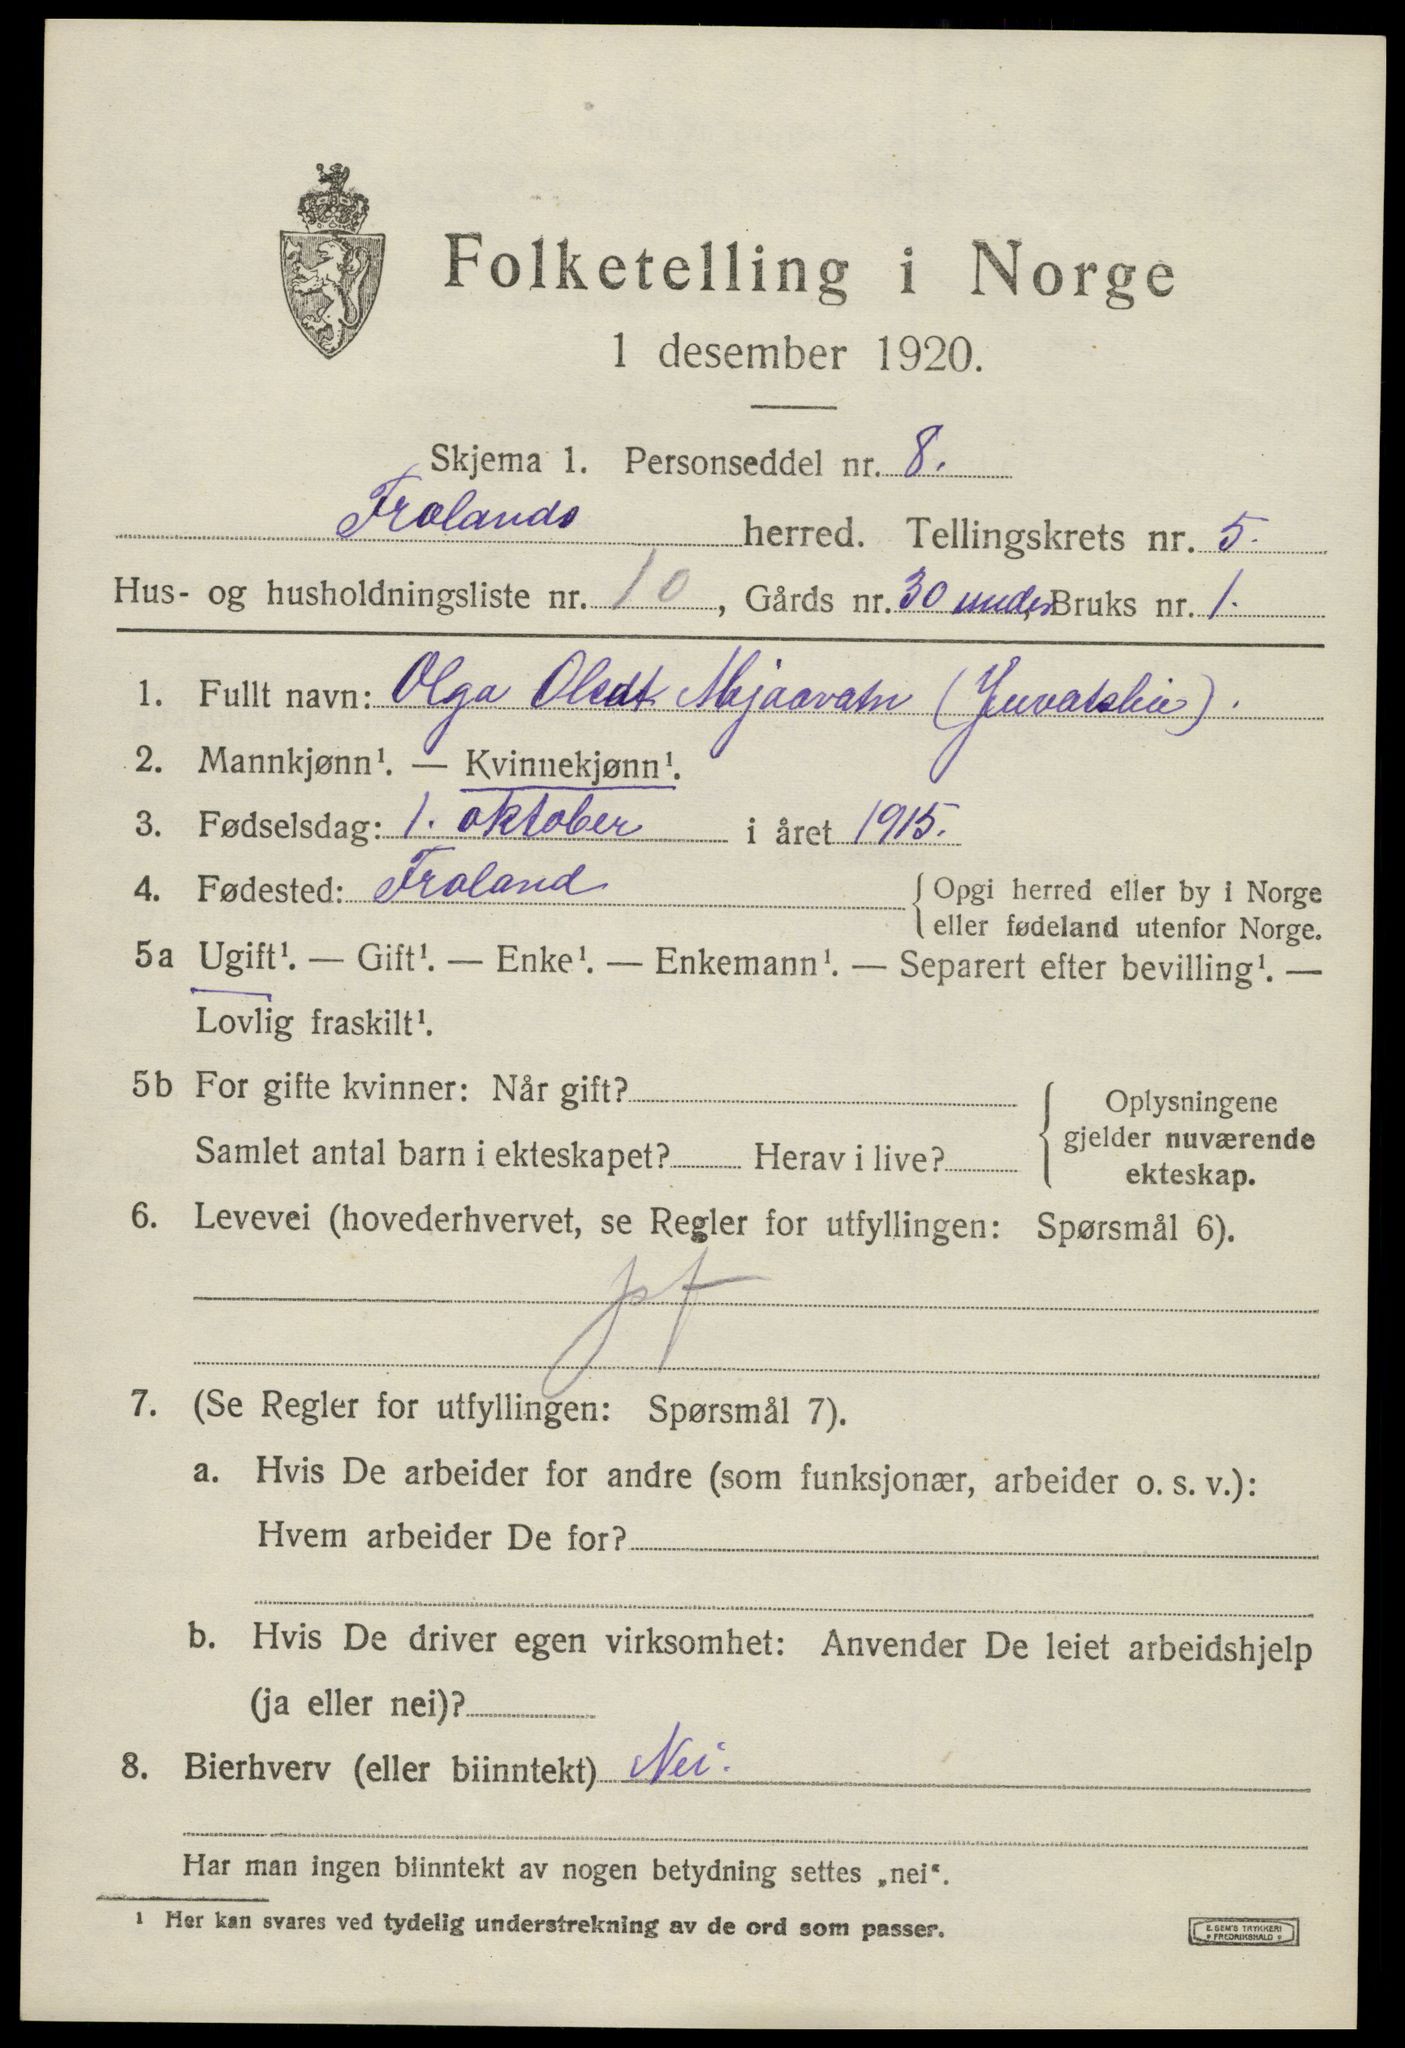 Folketelling i Norge
1 desember 1920.
Skjema 1. Personseddel nr. 8.
Frolands herred. Tellingskrets nr. 5.
Hus- og husholdningsliste nr. 10, Gårds nr. 30 under, Bruks nr. 1.
1. Fullt navn: Olga Oledt Mjaavatn (Juvatslia).
2. Mannkjønn¹. — Kvinnekjønn¹.
3. Fødselsdag: 1. oktober i året 1915.
4. Fødested: Froland { Opgi herred eller by i Norge
eller fødeland utenfor Norge.
5a Ugift¹. — Gift¹. — Enke¹. — Enkemann¹. — Separert efter bevilling¹. —
Lovlig fraskilt¹.
5b For gifte kvinner: Når gift? { Oplysningene
gjelder nuværende
Samlet antal barn i ekteskapet? Herav i live?
ekteskap.
6. Levevei (hovederhvervet, se Regler for utfyllingen: Spørsmål 6).
7. (Se Regler for utfyllingen: Spørsmål 7).
a. Hvis De arbeider for andre (som funksjonær, arbeider o. s. v.):
Hvem arbeider De for?
b. Hvis De driver egen virksomhet: Anvender De leiet arbeidshjelp
(ja eller nei)?
8. Bierhverv (eller biinntekt) Nei.
Har man ingen biinntekt av nogen betydning settes „nei“.
¹ Her kan svares ved tydelig understrekning av de ord som passer.
E. SEM'S TRYKKERI
FREDRIKSHALD